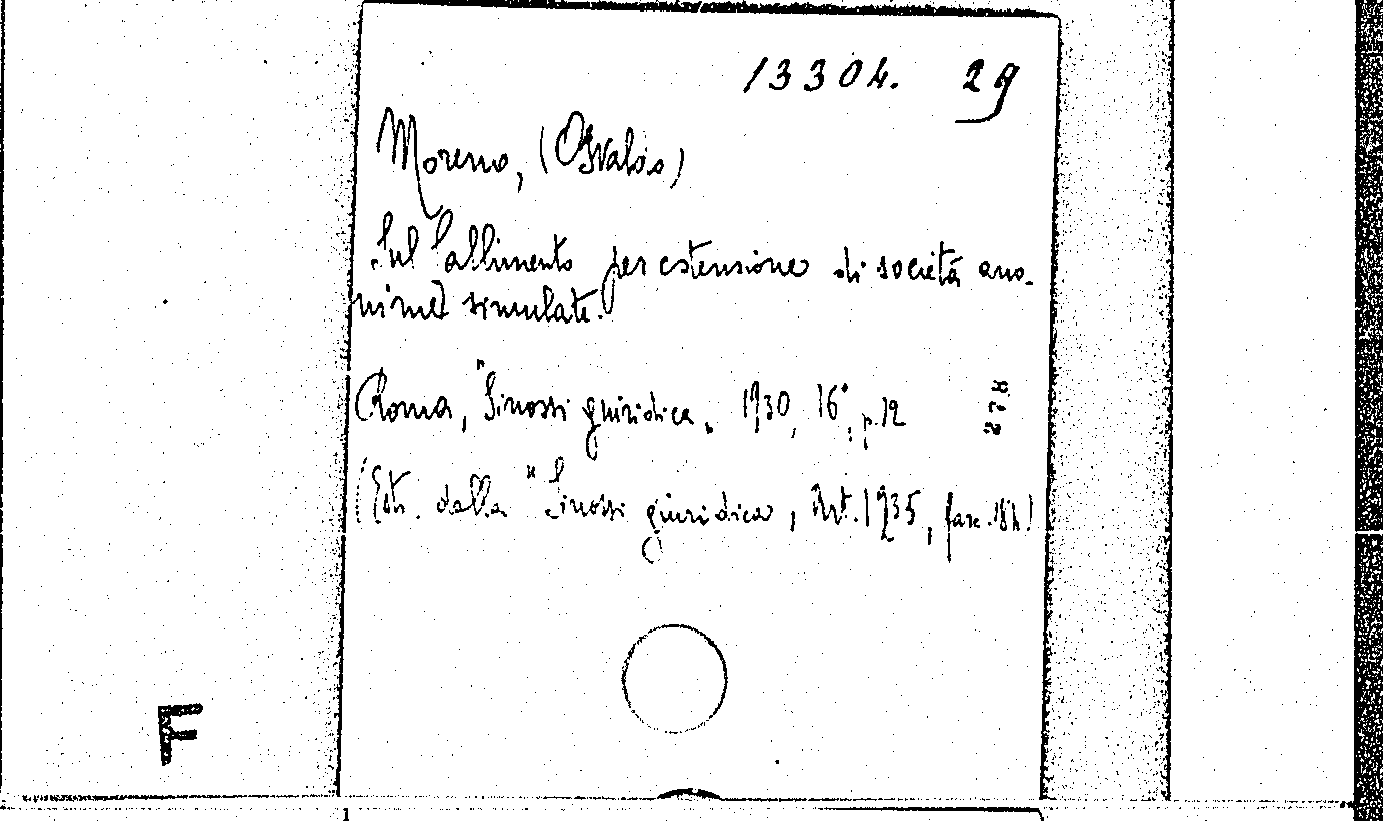 13304. 29
Moreno, (Osvaldo)
Sul fallimento per estensione di società ano-
nime simulate.
Roma, "Sinossi giuridica„ 1930, 16°, p. 12
278
(Estr. dalla "Sinossi giuridica, Art. 1935, fasc.
F